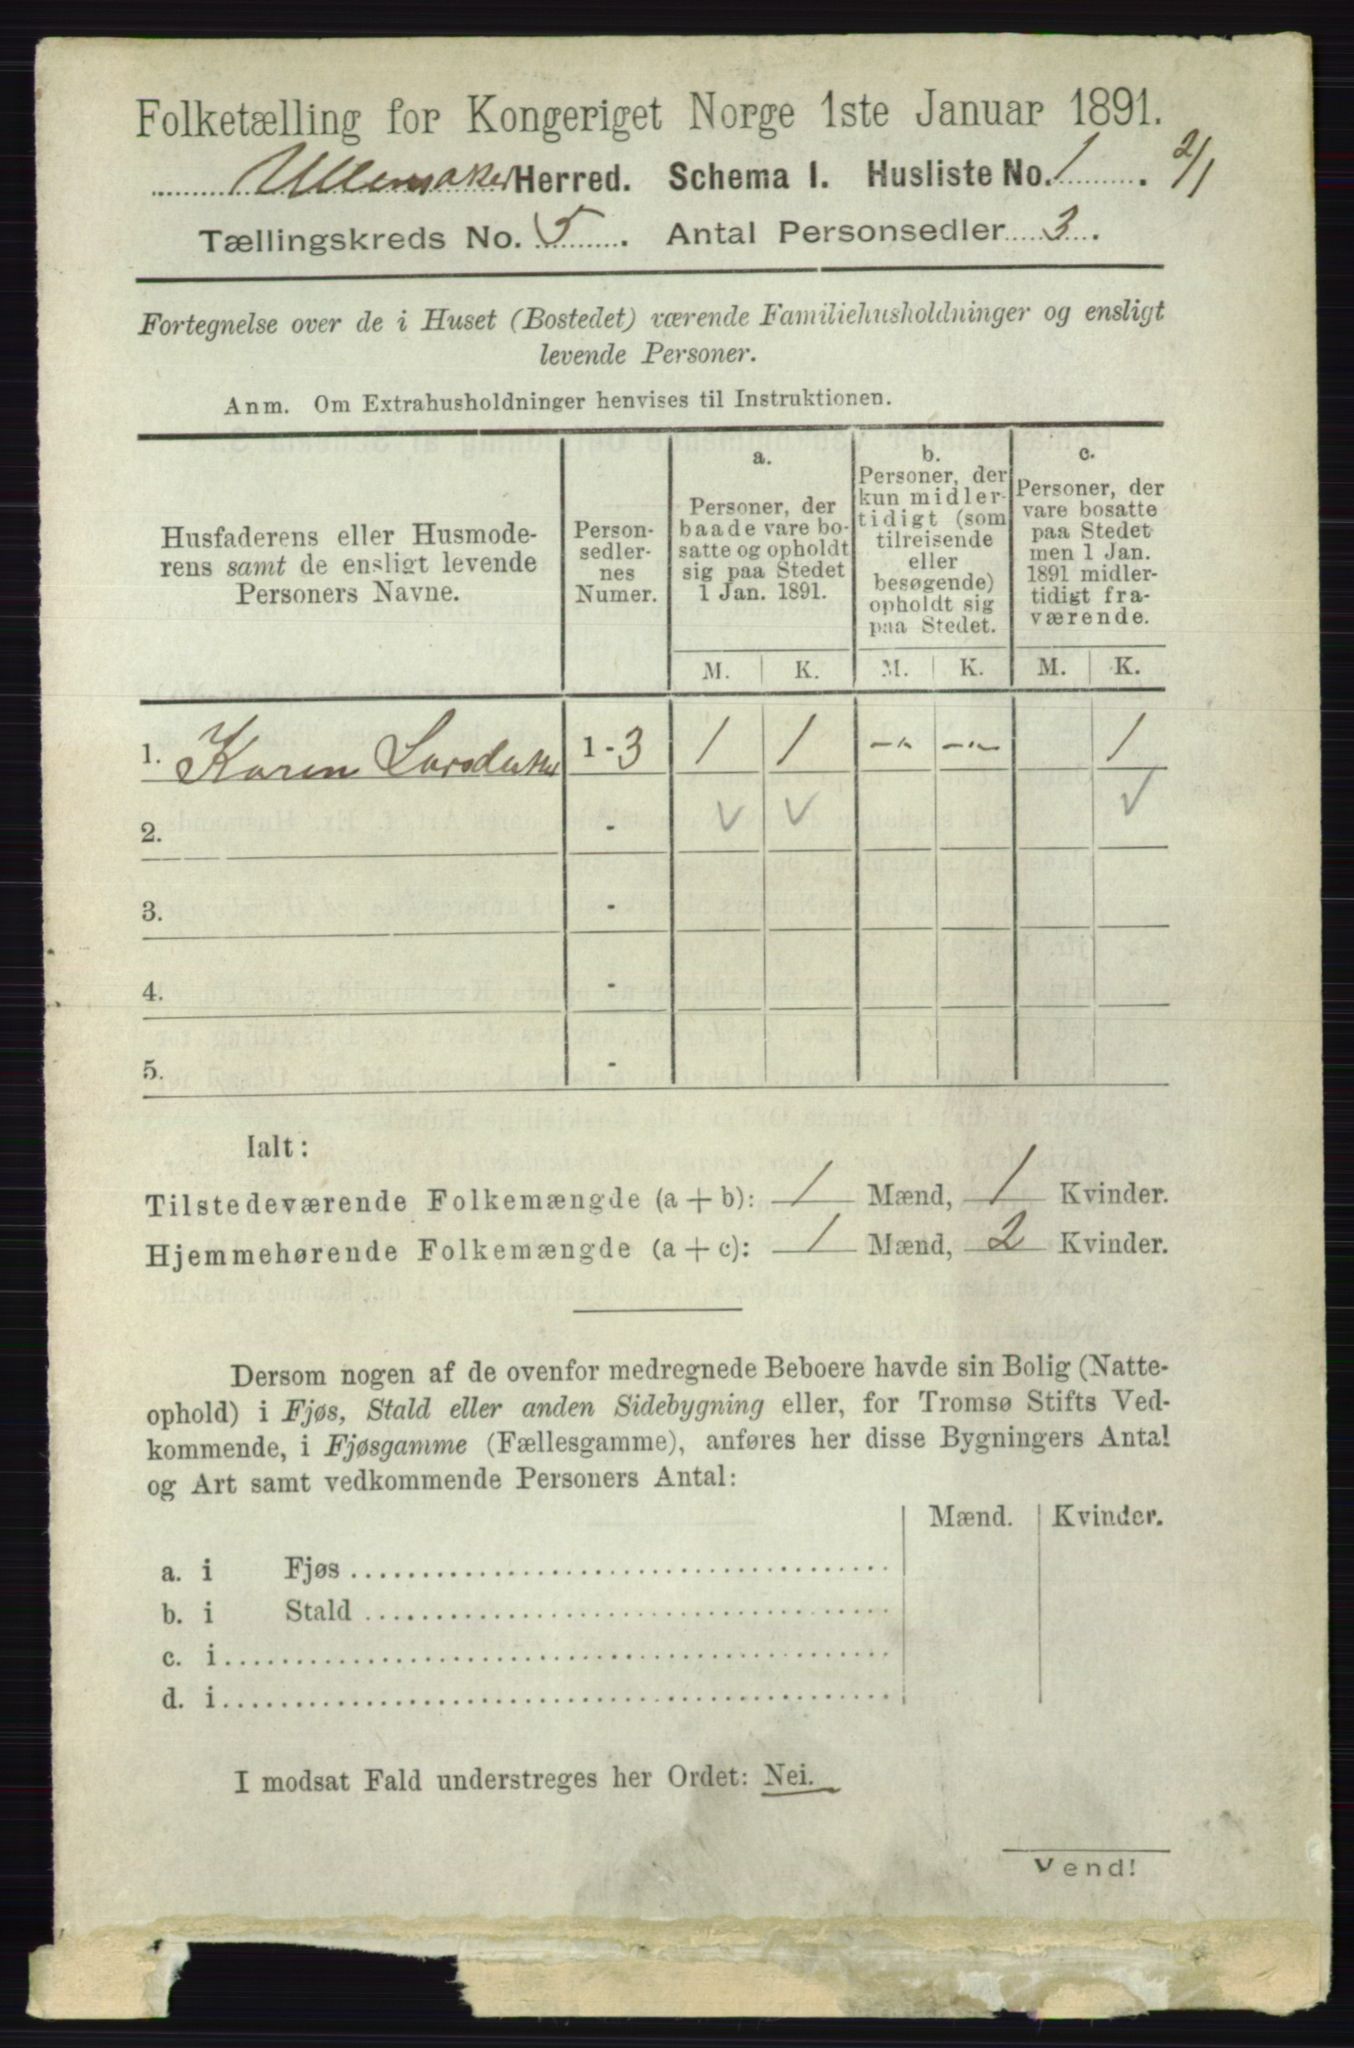 Folketælling for Kongeriget Norge 1ste Januar 1891.
Ullensaker Herred. Schema I. Husliste No. 1. 2/1
Tællingskreds No. 5. Antal Personsedler 3.
Fortegnelse over de i Huset (Bostedet) værende Familiehusholdninger og ensligt
levende Personer.
Anm. Om Extrahusholdninger henvises til Instruktionen.
Husfaderens eller Husmode-
rens samt de ensligt levende
Personers Navne.
Person-
sedler-
nes
Numer.
a.
Personer, der
baade vare bo-
satte og opholdt
sig paa Stedet
1 Jan. 1891.
b.
Personer, der
kun midler-
tidigt (som
tilreisende
eller
besøgende)
opholdt sig
paa Stedet.
c.
Personer, der
vare bosatte
paa Stedet
men 1 Jan.
1891 midler-
tidigt fra-
værende.
M. K. M. K. M. K.
1. Karen Larsdatter 1 - 3 1 1 -"- -"- 1
2. - ✓ ✓ ✓
3. -
4. -
5. -
Ialt:
Tilstedeværende Folkemængde (a + b): 1 Mænd, 1 Kvinder.
Hjemmehørende Folkemængde (a + c): 1 Mænd, 2 Kvinder.
Dersom nogen af de ovenfor medregnede Beboere havde sin Bolig (Natte-
ophold) i Fjøs, Stald eller anden Sidebygning eller, for Tromsø Stifts Ved-
kommende, i Fjøsgamme (Fællesgamme), anføres her disse Bygningers Antal
og Art samt vedkommende Personers Antal:
Mænd. Kvinder.
a. i Fjøs
b. i Stald
c. i
d. i
I modsat Fald understreges her Ordet: Nei.
Vend!